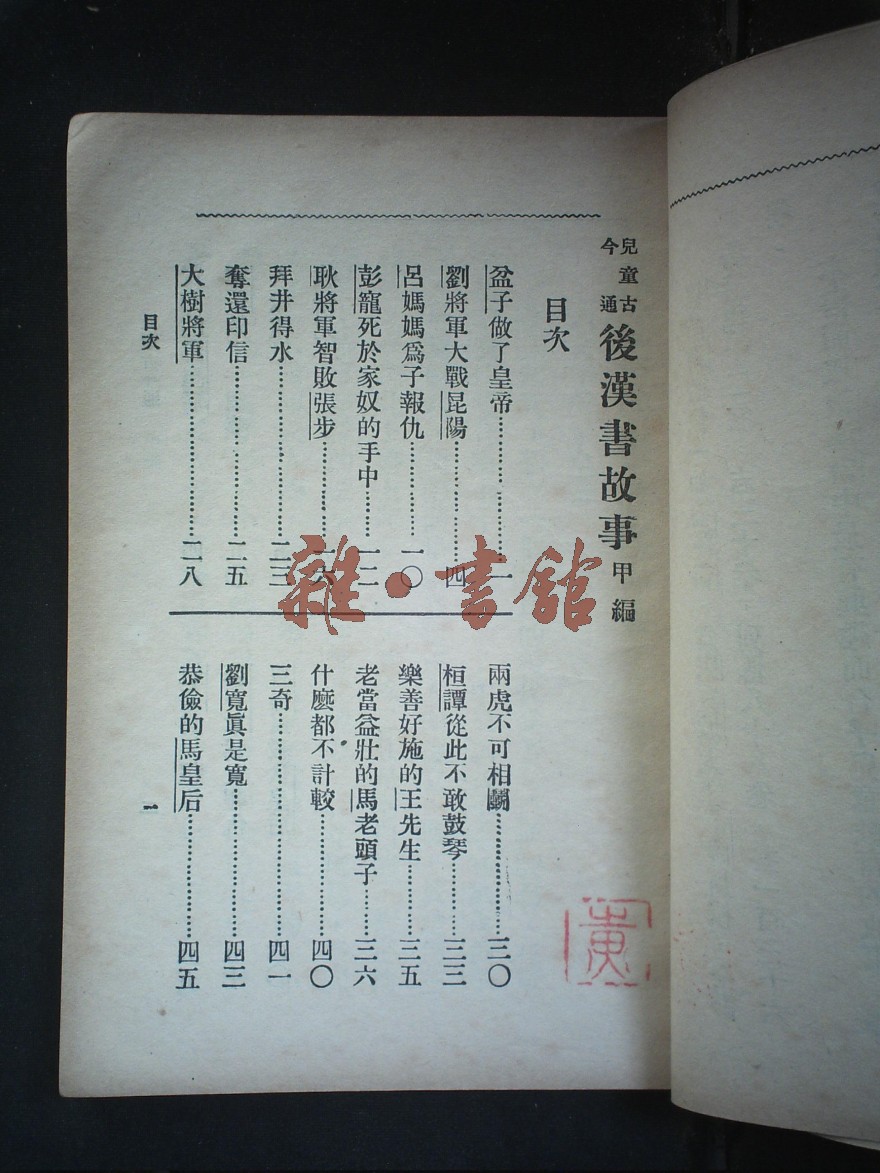 兒童古今通
後漢書故事甲編
目次
盆子做了皇帝……………一
劉將軍大戰昆陽……………四
呂媽媽爲子報仇……………一〇
彭寵死於家奴的手中……一二
耿將軍智敗張步……………一六
拜井得水……………二三
奪還印信……………二五
大樹將軍……………二八
兩虎不可相鬭……………三〇
桓譚從此不敢鼓琴……………三三
樂善好施的王先生……………三五
老當益壯的馬老頭子……三六
什麽都不計較……………四〇
三奇……………四一
劉寬眞是寬……………四三
恭儉的馬皇后……………四五
目次
一
雜·書館
黄